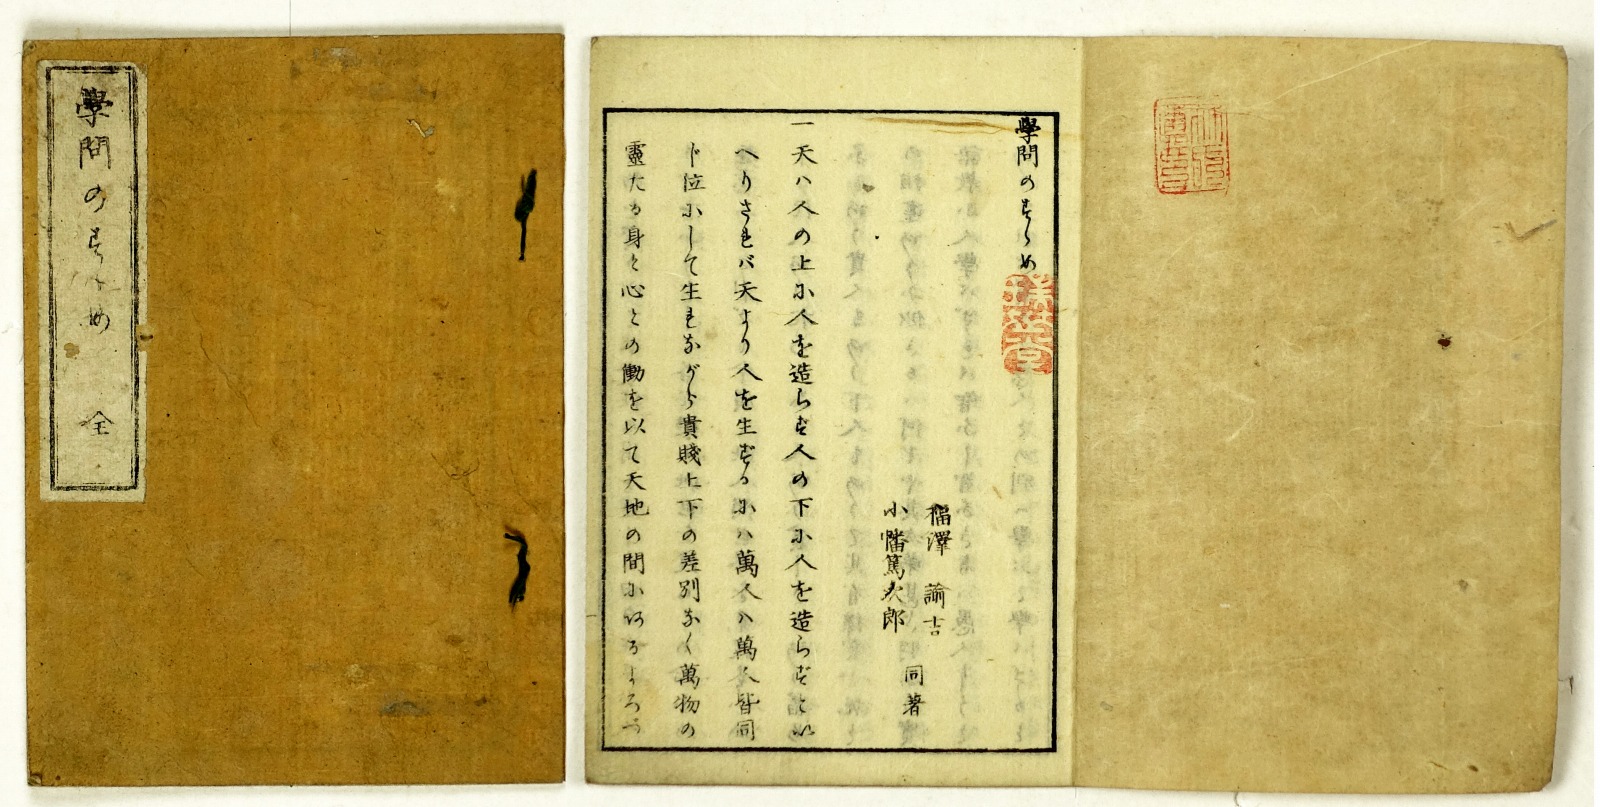 學問のすゝめ
全
學問のすゝめ
福澤諭吉
小幡篤次郎
同著
一天ハ人の上に人を造らず人の下に人を造らずと云
へりされバ天より人を生ずるにハ萬人ハ萬人皆同
じ位にして生れながら貴賤上下の差別なく萬物の
靈たる身と心との働を以て天地の間にあるよろづ